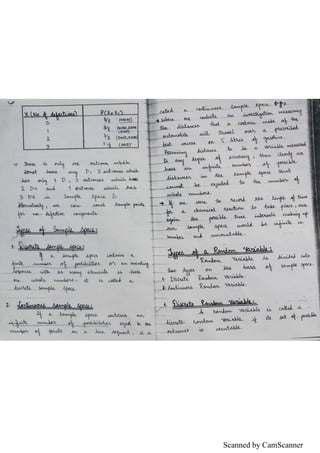 X (No. of defectives) P(X=x)
0 1/8 (NNN)
1 3/8
2 3/8
3 1/8 (DDD)
⇒ There is only one outcome which
doesnot have any D, 3 outcomes which
has only 1 D, 3 outcomes which have
2 Ds and 1 outcome which has
3 Ds in Sample Space S.
Alternatively, we can count Sample points
for no. defective components.
Types of Sample Space:
1. Discrete Sample Space:
If a sample space contains a
finite number of possibilities or an unending
sequence with as many elements as there
are whole numbers, it is called a
discrete sample space.
2. Continuous Sample Space:
If a sample space contains an
infinite number of possibilities equal to the
number of points on a line segment, it is
called a continuous sample space. e.g.,
Where one conducts an investigation measuring
the distances that a certain make of the
automobile will travel over a prescribed
test course on 5 litres of gasoline.
Assuming distance to be a variable measured
to any degree of accuracy, then clearly we
have an infinite number of possible
distances in the sample space that
cannot be equated to the number of
whole numbers.
→ If one were to record the length of time
for a chemical reaction to take place, once
again the possible time intervals making up
our sample space would be infinite in
number and uncountable.
Types of a Random Variable:
Random Variable is divided into
two types on the basis of sample space.
1. Discrete Random Variable
2. Continuous Random Variable.
1. Discrete Random Variable:
A random variable is called a
discrete random variable if its set of possible
outcomes is countable.
Scanned by CamScanner